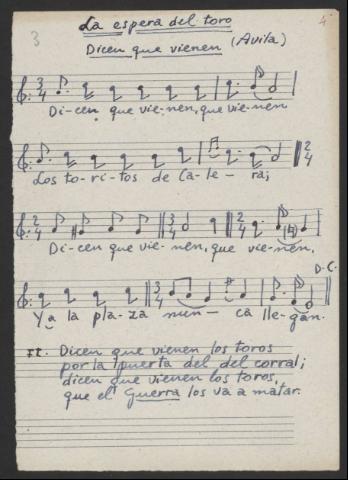 La espera del toro
4
3
Dicen que vienen (Avila)
3/4
Di-cen que vie-nen, que vie-nen
2/4
Los to-ri-tos de Ca-le-ra;
2/4 3/4 2/4
Di-cen que vie-nen, que vie-nen,
D.C.
3/4
Ya la pla-za nun-ca lle-gan.
II. Dicen que vienen los toros
por la puerta del del corral;
dicen que vienen los toros,
que el Guerra los va a matar.